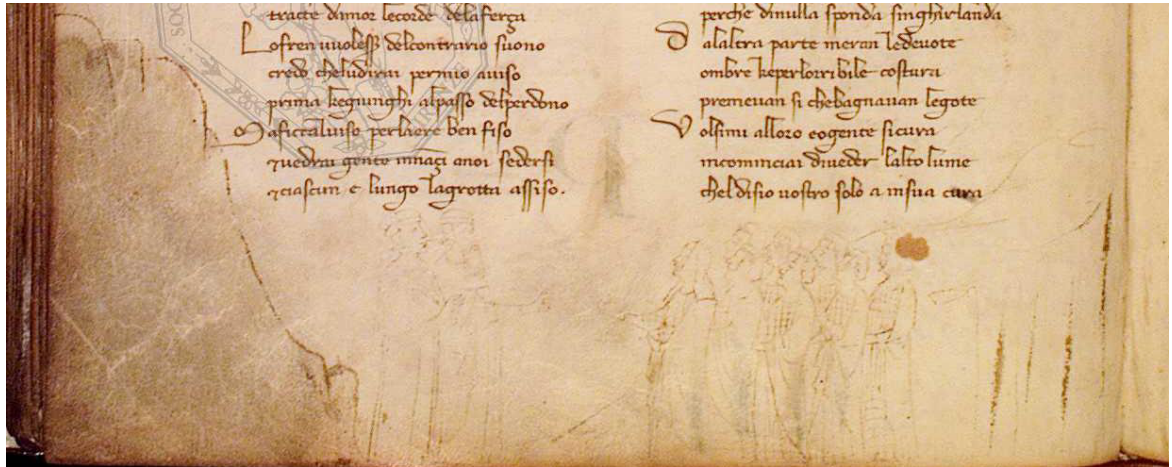 tracte damor lecorde dela ferça
Lofren uuolesser delcontrario suono
credo cheludirai permio auiso
prima kegiunghi alpasso delperdono
Maficcaluiso perlaere ben fiso
⁊uedrai gente innaçi anoi sedersi
⁊ciascun e lungo lagrotta assiso.
perche dinulla sponda singhirlanda
Dalaltra parte meran ledeuote
ombre keperlorribile costura
premeuan si chebagnauan legote
Volsimi alloro eogente sicura
incominciai diueder lalto lume
cheldisio uostro solo a insua cura
SOC